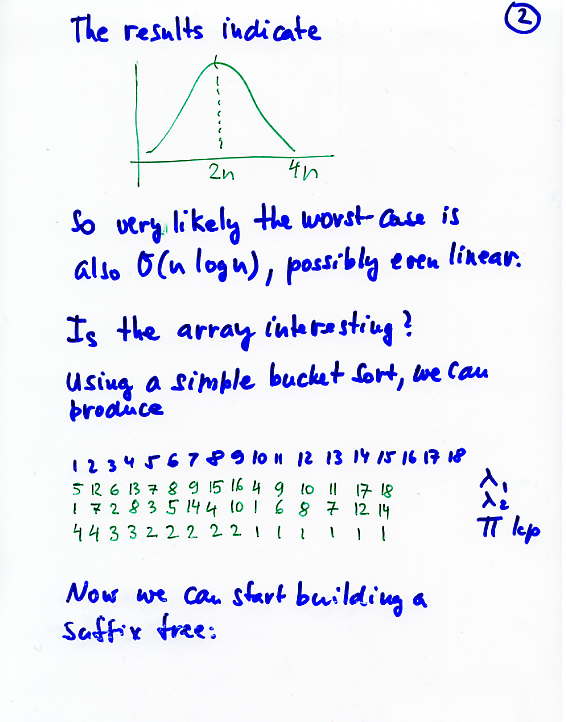 2
The results indicate
2n 4n
So very likely the worst-case is
also O(n log n), possibly even linear.
Is the array interesting?
Using a simple bucket sort, we can
produce
1 2 3 4 5 6 7 8 9 10 11 12 13 14 15 16 17 18
5 12 6 13 7 8 9 15 16 4 9 10 11 17 18 λ₁
1 7 2 8 3 5 14 4 10 1 6 8 7 12 14 λ₂
4 4 3 3 2 2 2 2 2 1 1 1 1 1 1 π lcp
Now we can start building a
suffix tree: